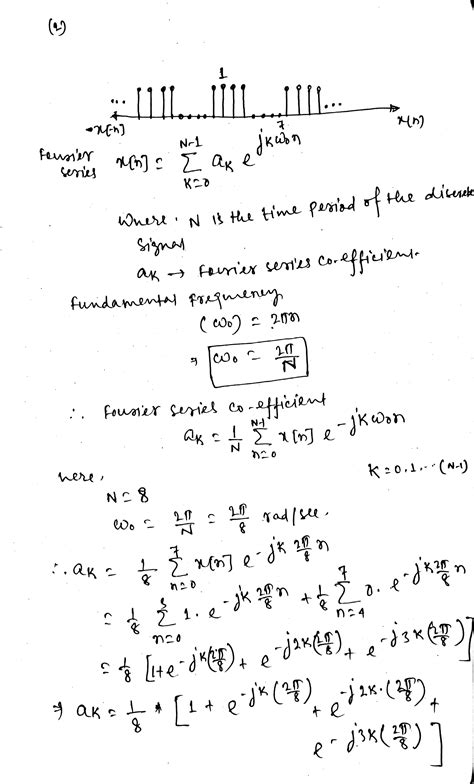 (2)
1
... ...
-x[-n] 7 x(n)
Fourier series x[n] = \sum_{k=0}^{N-1} a_k e^{jkω₀n}
Where, N is the time period of the discrete
signal
a_k → Fourier series co-efficient.
Fundamental frequency
(ω₀) = 2πn
⇒ ω₀ = \frac{2π}{N}
∴ Fourier series co-efficient
a_k = \frac{1}{N} \sum_{n=0}^{N-1} x[n] e^{-jkω₀n}
K = 0,1,...(N-1)
here,
N = 8
ω₀ = \frac{2π}{N} = \frac{2π}{8} rad/sec.
∴ a_k = \frac{1}{8} \sum_{n=0}^{7} x[n] e^{-jk\frac{2π}{8}n}
= \frac{1}{8} \sum_{n=0}^{3} 1. e^{-jk\frac{2π}{8}n} + \frac{1}{8} \sum_{n=4}^{7} 0. e^{-jk\frac{2π}{8}n}
= \frac{1}{8} [1+e^{-jk(\frac{2π}{8})} + e^{-j2k(\frac{2π}{8})} + e^{-j3k(\frac{2π}{8})}]
⇒ a_k = \frac{1}{8} * [1 + e^{-jk(\frac{2π}{8})} + e^{-j2k.(\frac{2π}{8})} +
e^{-j3k(\frac{2π}{8})}]